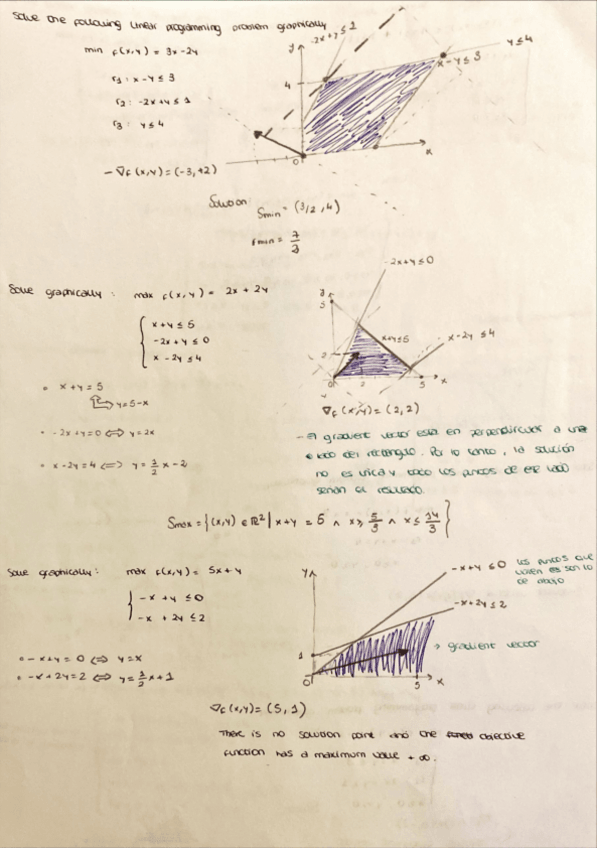 Solve the following linear programming problem graphically
min f(x,y) = 3x-2y
r1: x-y ≤ 3
r2: -2x+y ≤ 1
r3: y ≤ 4
-∇f(x,y) = (-3,+2)
y
-2x+y ≤ 1
y ≤ 4
x-y ≤ 3
4
0
x
Solution: Smin = (3/2, 4)
fmin = 7/2
Solve graphically: max f(x,y) = 2x + 2y
x+y ≤ 5
-2x+y ≤ 0
x-2y ≤ 4
• x+y = 5
y=5-x
• -2x+y=0 ⟺ y=2x
• x-2y=4 ⟺ y=1/2 x-2
-2x+y ≤ 0
y
5
x+y≤5
x-2y ≤ 4
2
0 2 5 x
∇f(x,y) = (2,2)
- El gradient vector esta en perpendicular a une
lado del rectangulo. Por lo tanto, la solución
no es unica y todo los puntos de ese lado
serian el resultado.
Smax = {(x,y) ∈ ℝ² | x+y = 5 ∧ x ≥ 5/3 ∧ x ≤ 14/3}
Solve graphically: max f(x,y) = 5x+y
-x+y ≤ 0
-x+2y ≤ 2
• -x+y = 0 ⟺ y=x
• -x+2y=2 ⟺ y=1/2 x+1
y
-x+y ≤ 0
los puntos que
valen es son lo
de abajo
-x+2y ≤ 2
→ gradient vector
1
0 5 x
∇f(x,y) = (5,1)
There is no solution point and the objective
function has a maximum value +∞.